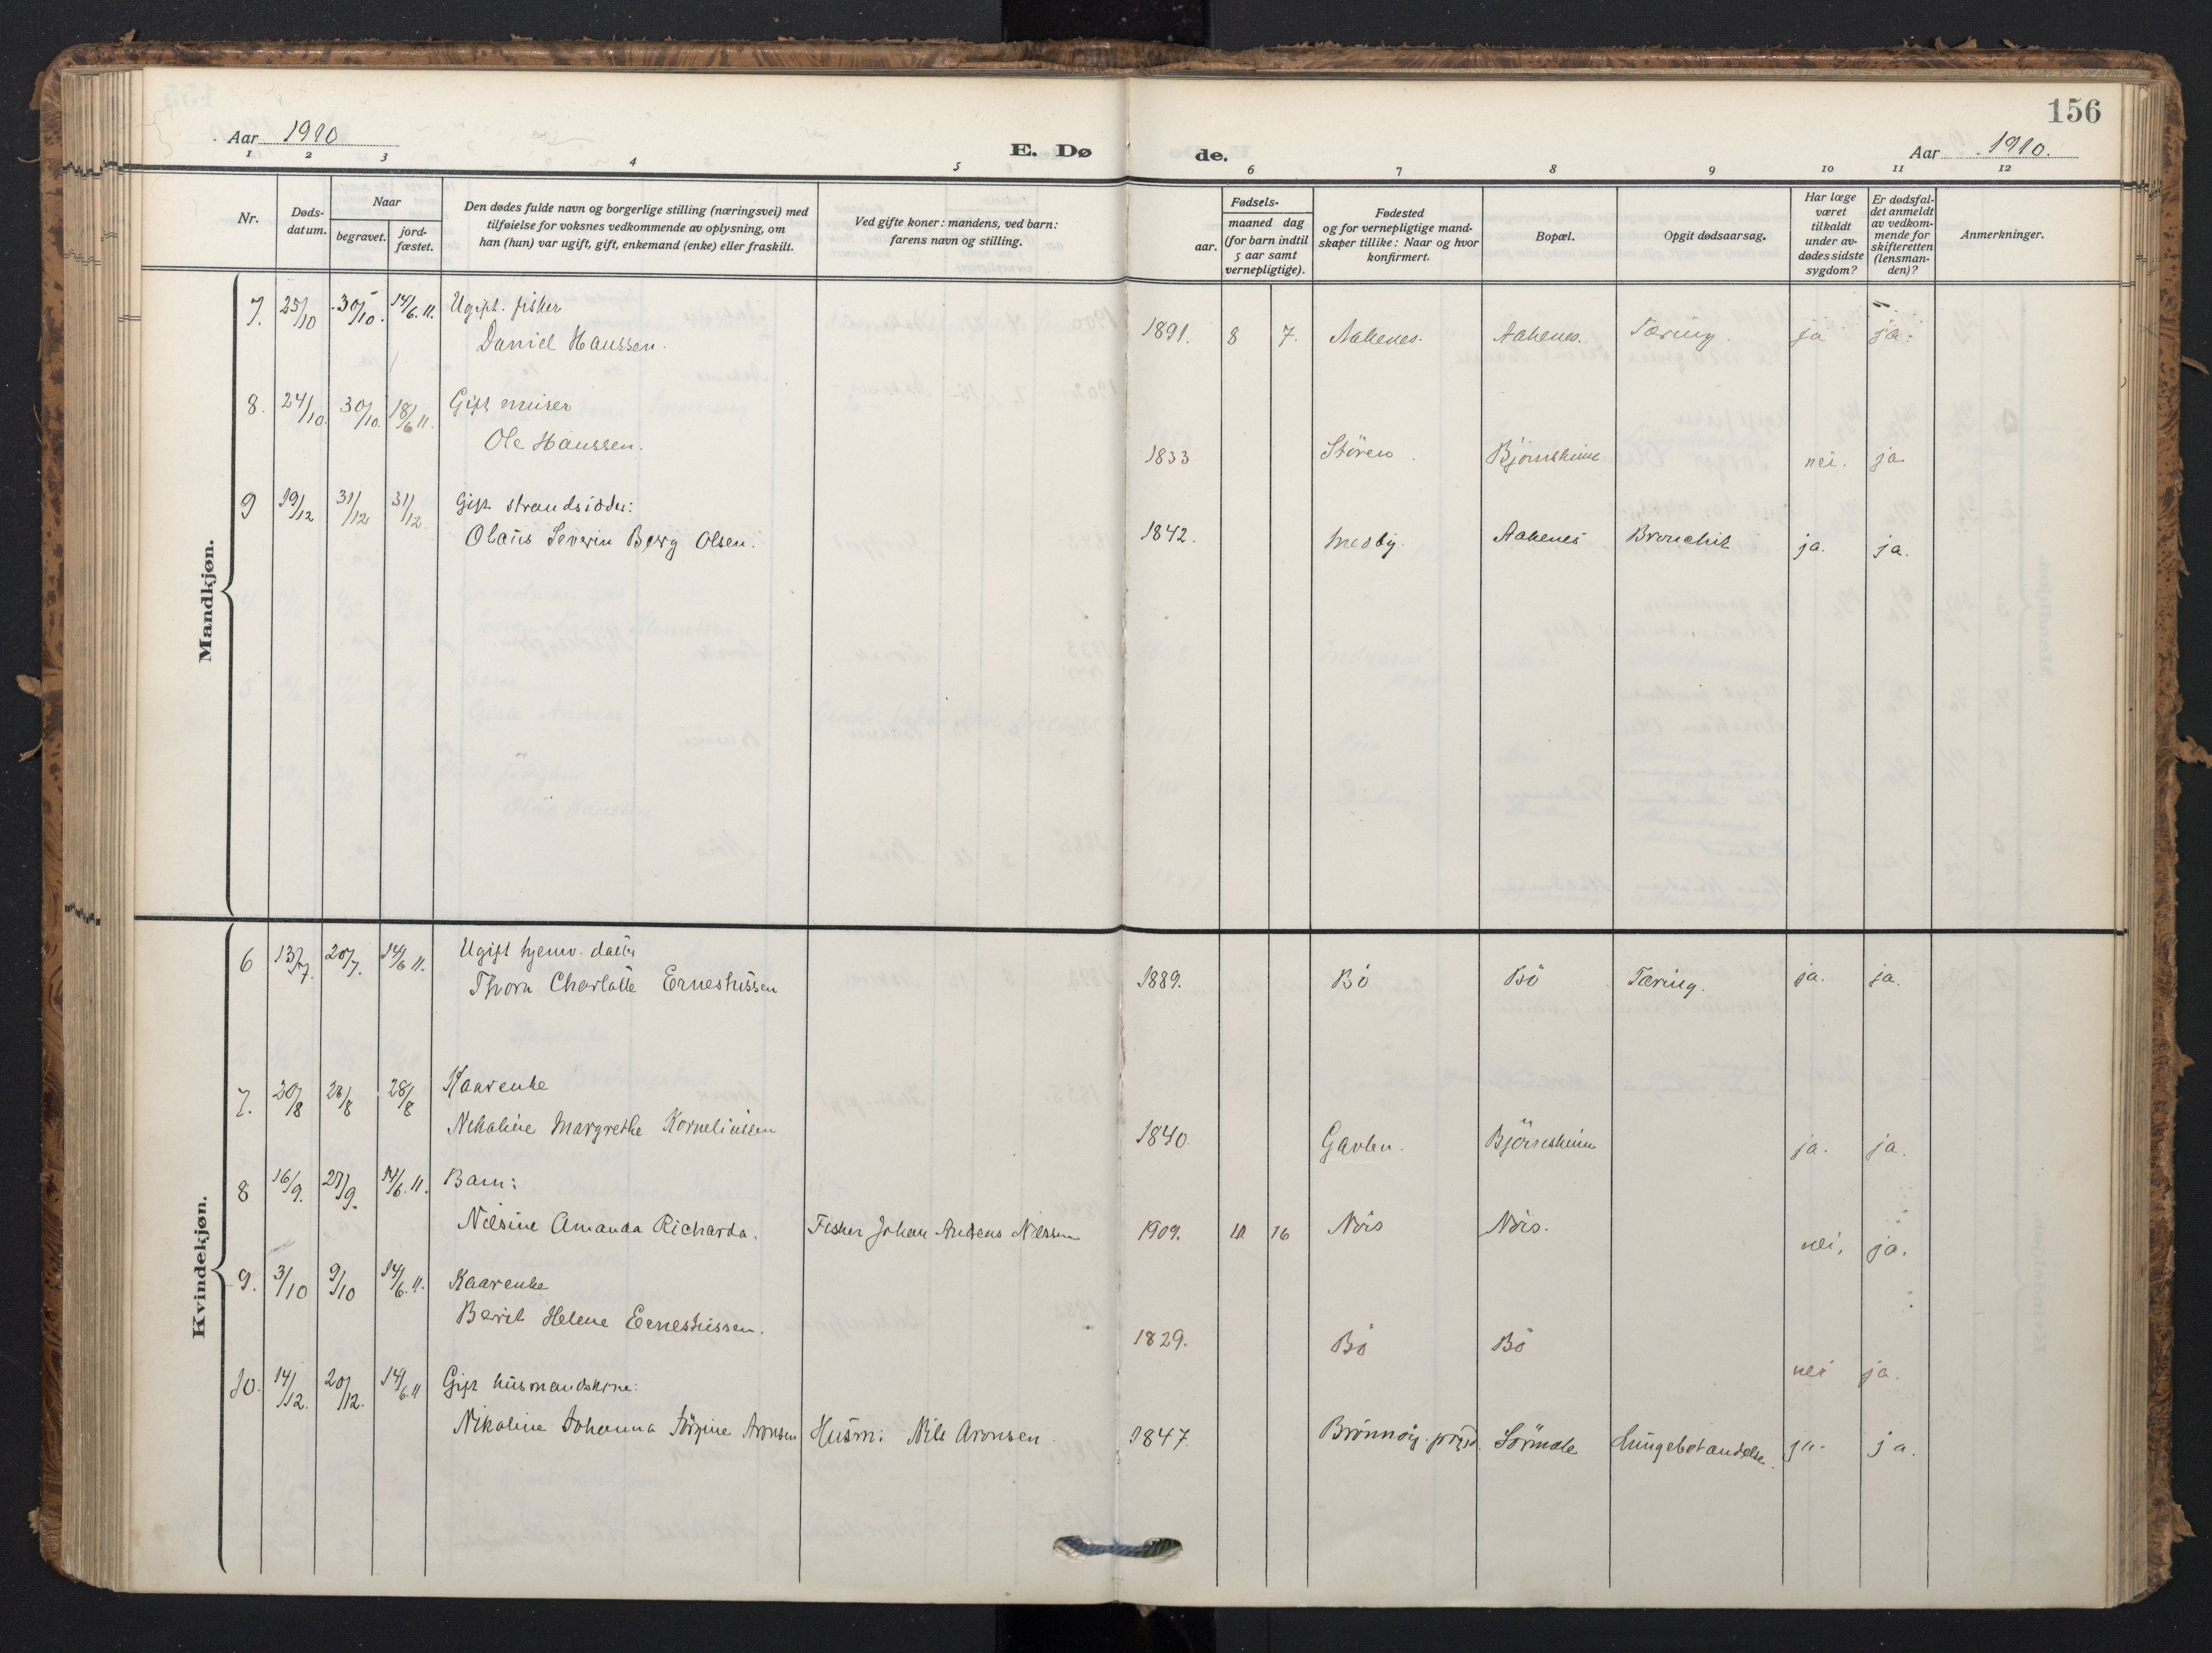 156
Aar 1910
E. Dø de.
Aar 1910.
1 2 3 4 5 6 7 8 9 10 11 12
Nr.
Døds-datum.
Naar
begravet.
jord-fæstet.
Den dødes fulde navn og borgerlige stilling (næringsvei) med
tilføielse for voksnes vedkommende av oplysning, om
han (hun) var ugift, gift, enkemand (enke) eller fraskilt.
Ved gifte koner: mandens, ved barn:
farens navn og stilling.
Fødsels-
aar.
maaned dag
(for barn indtil
5 aar samt
vernepligtige).
Fødested
og for vernepligtige mand-
skaper tillike: Naar og hvor
konfirmert.
Bopæl.
Opgit dødsaarsag.
Har læge
været
tilkaldt
under av-
dødes sidste
sygdom?
Er dødsfal-
det anmeldt
av vedkom-
mende for
skifteretten
(lensman-
den)?
Anmerkninger.
Mandkjøn.
7. 25/10 30/10. 14/6.11. Ugift. fisker
Daniel Haussen. 1891. 8 7. Aakenes. Aakenes. Tæring. ja ja.
8. 24/10. 30/10. 18/6 11. Gift
Ole Haussen. 1833 Stören. Björnskinn nei. ja.
9 19/12 31/12 31/12. Gift strandsidder:
Olaus Severin Berg Olsen. 1842. Medby. Aakenes Bronchit ja. ja.
Kvindekjøn.
6 13/7. 20/7. 14/6 11. Ugift hjemv. datter
Thora Charlotte Ernestussen 1889. Bö Bö Tæring. ja. ja.
7. 20/8 26/8 28/8 Kaarenke
Nikoline Margrethe Korneliussen 1840. Gavlen. Björnskinn ja. ja.
8 16/9. 27/9. 14/6.11. Barn:
Nilsine Amanda Richarda. Fisker Johan Andreas Nilssen 1909. 10 16 Nöis Nöis. nei, ja.
9. 3/10 9/10 14/6.11. Kaarenke
Berit Helene Ernestussen. 1829. Bö Bö nei ja.
10. 14/12. 20/12. 14/6.11 Gift husmandskone:
Nikoline Johanna Jörgine Aronsen Husm: Nils Aronsen 1847. Brönnöy prgjd. Sörmole Lungebetændelse. ja. ja.